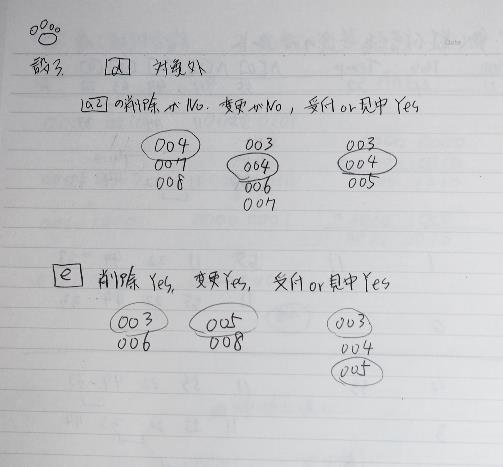 設3. d 対象外
a2 の削除がNo. 変更がNo, 受付or見中Yes
004 003 003
007 004 004
008 006 005
007
e 削除Yes, 変更Yes, 受付or見中Yes
003 005 003
006 008 004
005